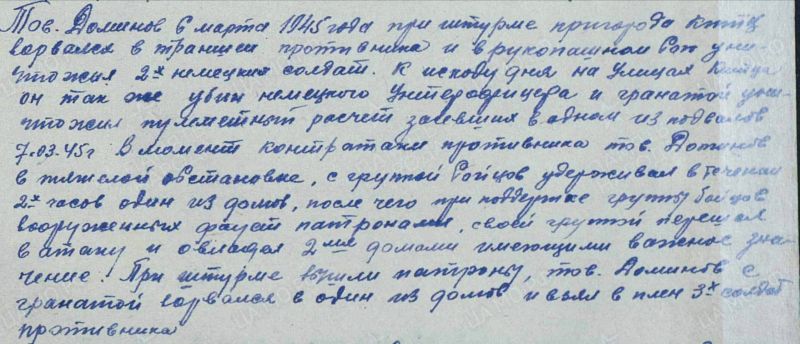 Тов. Доминов 6 марта 1945 года при штурме пригорода
ворвался в траншеи противника и в рукопашном бою уни-
чтожил 2х немецких солдат. К исходу дня на улицах
он так же убил немецкого унтерофицера и гранатой уни-
чтожил пулеметный расчет засевших в одном из подвалов
7.03.45г В момент контратаки противника тов. Доминов
в тяжелой обстановке, с группой бойцов удерживал в течении
2х часов один из домов, после чего при поддержке группы бойцов
вооруженных фауст патронами, своей группой перешел
в атаку и овладел 2мя домами имеющими важное зна-
чение. При штурме вышли патроны, тов. Доминов с
гранатой ворвался в один из домов и взял в плен 3х солдат
противника